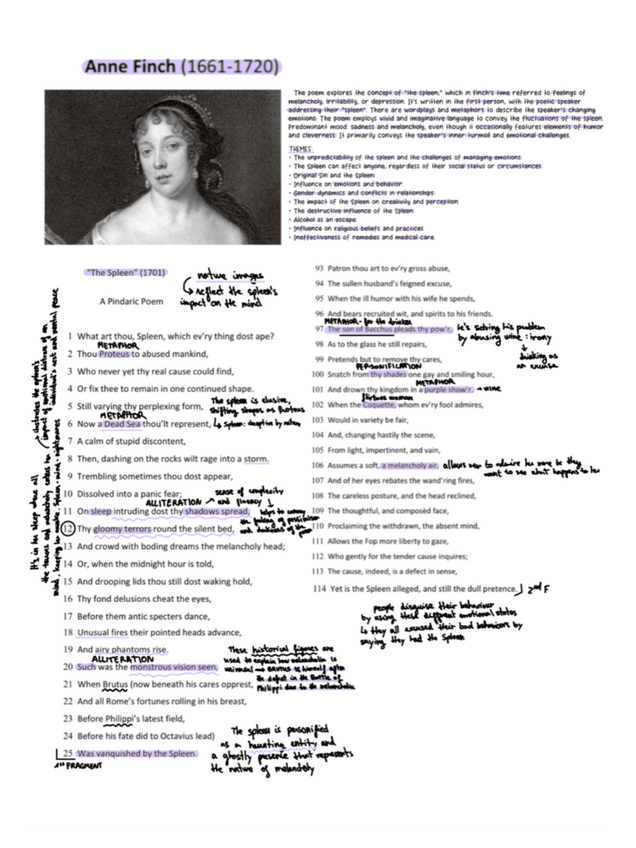 Anne Finch (1661-1720)
The poem explores the concept of "the spleen," which in Finch's time referred to feelings of
melancholy, irritability, or depression. It's written in the first person, with the poetic speaker
addressing their "spleen". There are wordplays and metaphors to describe the speaker's changing
emotions. The poem employs vivid and imaginative language to convey the fluctuations of the spleen.
Predominant mood: sadness and melancholy, even though it occasionally features elements of humor
and cleverness. It primarily conveys the speaker's inner turmoil and emotional challenges.
THEMES:
• The unpredictability of the spleen and the challenges of managing emotions
• The Spleen can affect anyone, regardless of their social status or circumstances.
• Original Sin and the Spleen
• Influence on emotions and behavior
• Gender dynamics and conflicts in relationships
• The impact of the Spleen on creativity and perception
• The destructive influence of the Spleen
• Alcohol as an escape
• Influence on religious beliefs and practices
• Ineffectiveness of remedies and medical care
"The Spleen" (1701)
nature images
↳ reflect the spleen's
impact on the mind
A Pindaric Poem
1 What art thou, Spleen, which ev'ry thing dost ape?
METAPHOR
2 Thou Proteus to abused mankind,
3 Who never yet thy real cause could find,
4 Or fix thee to remain in one continued shape.
5 Still varying thy perplexing form,
The spleen is elusive,
shifting shapes as Proteus
METAPHOR
6 Now a Dead Sea thou'lt represent,
↳ Spleen: deceptive by nature
7 A calm of stupid discontent,
8 Then, dashing on the rocks wilt rage into a storm.
9 Trembling sometimes thou dost appear,
10 Dissolved into a panic fear;
sense of complexity
and fluency
ALLITERATION
11 On sleep intruding dost thy shadows spread,
12 Thy gloomy terrors round the silent bed,
13 And crowd with boding dreams the melancholy head;
14 Or, when the midnight hour is told,
15 And drooping lids thou still dost waking hold,
16 Thy fond delusions cheat the eyes,
17 Before them antic specters dance,
18 Unusual fires their pointed heads advance,
19 And airy phantoms rise.
ALLITERATION
20 Such was the monstrous vision seen,
These historical figures are
used to explain how melancholia is
21 When Brutus (now beneath his cares opprest,
22 And all Rome's fortunes rolling in his breast,
23 Before Philippi's latest field,
24 Before his fate did to Octavius lead)
25 Was vanquished by the Spleen.
1st FRAGMENT
The spleen is personified
as a haunting entity and
a ghostly presence that represents
the nature of melancholy
93 Patron thou art to ev'ry gross abuse,
94 The sullen husband's feigned excuse,
95 When the ill humor with his wife he spends,
96 And bears recruited wit, and spirits to his friends.
METAPHOR - for the drinker
97 The son of Bacchus pleads thy pow'r,
he's solving his problem
by abusing wine: irony
↓
drinking as
an excuse
98 As to the glass he still repairs,
99 Pretends but to remove thy cares,
PERSONIFICATION
100 Snatch from thy shades one gay and smiling hour,
METAPHOR
101 And drown thy kingdom in a purple show'r.
→ wine
102 When the Coquette, whom ev'ry fool admires,
103 Would in variety be fair,
104 And, changing hastily the scene,
105 From light, impertinent, and vain,
106 Assumes a soft, a melancholy air,
107 And of her eyes rebates the wand'ring fires,
108 The careless posture, and the head reclined,
109 The thoughtful, and composèd face,
110 Proclaiming the withdrawn, the absent mind,
111 Allows the Fop more liberty to gaze,
112 Who gently for the tender cause inquires;
113 The cause, indeed, is a defect in sense,
114 Yet is the Spleen alleged, and still the dull pretence.
2nd F
people disguise their behaviour
by using these different emotional states
↳ they all excused their bad behaviors by
saying they had the Spleen